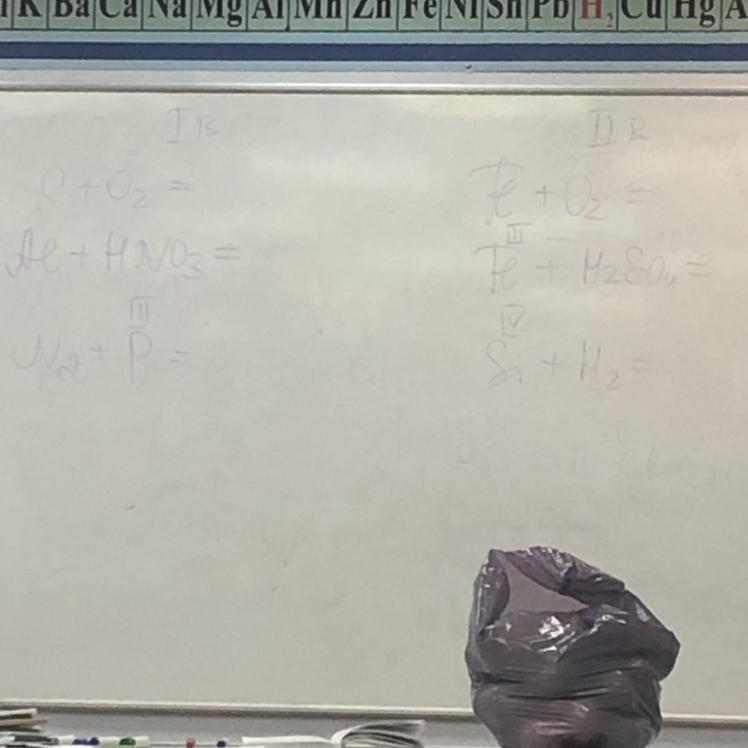 K Ba Ca Na Mg Al Mn Zn Fe Ni Sn Pb H₂ Cu Hg
I в
C + O₂ =
Al + HNO₃ =
III
N₂ + P =
II в
Fe + O₂ =
III
Fe + H₂SO₄ =
IV
Si + H₂ =